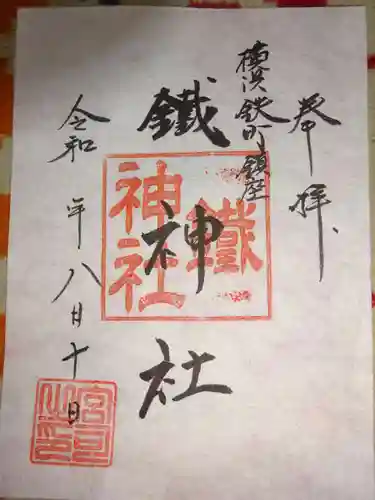 奉拝
横浜鉄町鎮座
鐵神社
鐵
神社
令和 年八月十日
宮司
之印